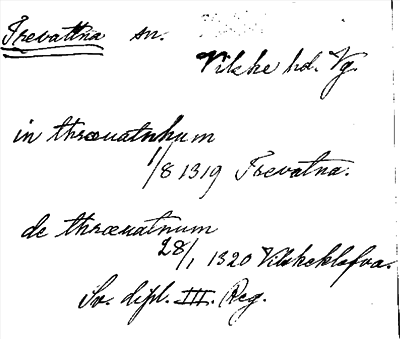 Trevattna sn.
Vilske hd. Vg.
in thræuatnhum
1/8 1319 Trevatna.
de thræuatnum
28/1 1320 Vilskeklefva.
Sv. dipl. III. Reg.